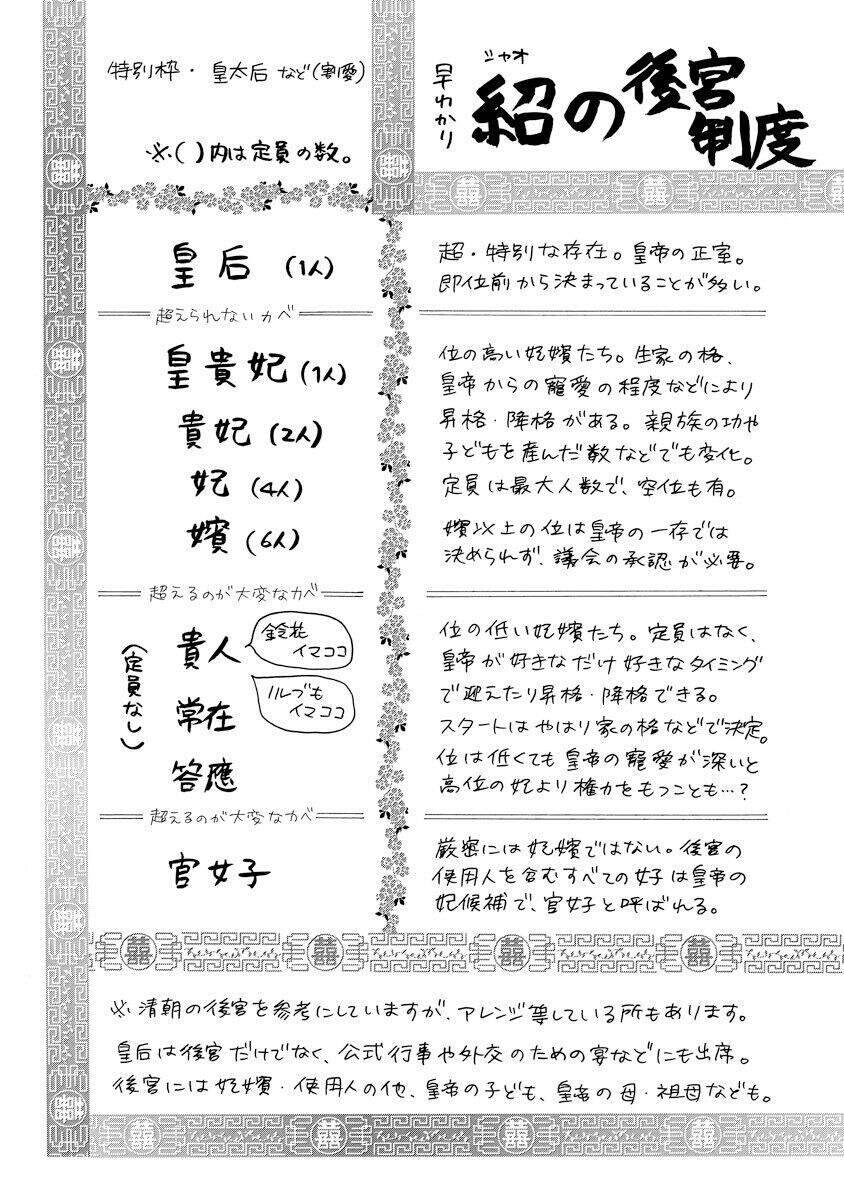 早わかり
シャオ
紹の後宮
制度
特別枠・皇太后など(割愛)
※( )内は定員の数。
皇后(1人)
超・特別な存在。皇帝の正室。
即位前から決まっていることが多い。
超えられないカベ
皇貴妃(1人)
貴妃(2人)
妃(4人)
嬪(6人)
位の高い妃嬪たち。生家の格、
皇帝からの寵愛の程度などにより
昇格・降格がある。親族の功や
子どもを産んだ数などでも変化。
定員は最大人数で、空位も有。
嬪以上の位は皇帝の一存では
決められず、議会の承認が必要。
超えるのが大変なカベ
(定員なし)
貴人
鈴花
イマココ
常在
ハルヅも
イマココ
答應
位の低い妃嬪たち。定員はなく、
皇帝が好きなだけ好きなタイミング
で迎えたり昇格・降格できる。
スタートはやはり家の格などで決定。
位は低くても皇帝の寵愛が深いと
高位の妃より権力をもつことも…?
超えるのが大変なカベ
官女子
厳密には妃嬪ではない。後宮の
使用人を含むすべての女子は皇帝の
妃候補で、官女子と呼ばれる。
※清朝の後宮を参考にしていますが、アレンジ等している所もあります。
皇后は後宮だけでなく、公式行事や外交のための宴などにも出席。
後宮には妃嬪・使用人の他、皇帝の子ども、皇帝の母・祖母なども。